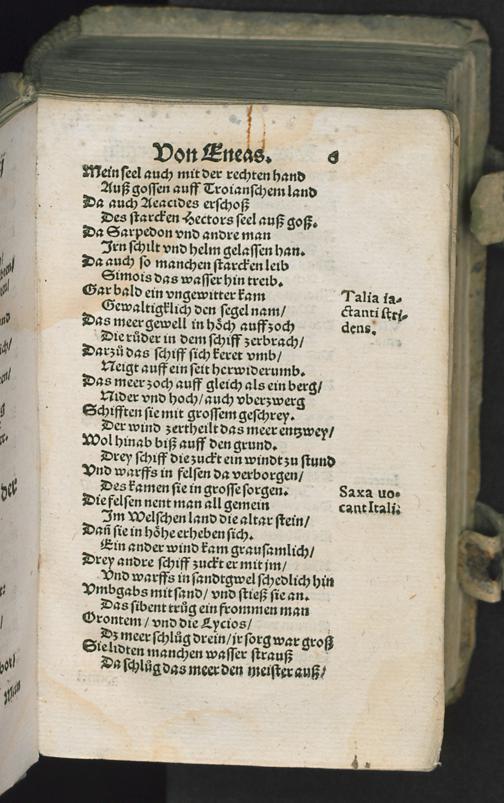 Von Eneas. 6
Mein seel auch mit der rechten hand
Auß gossen auff Troianschem land
Da auch Aeacides erschoß
Des starcken Hectors seel auß goß.
Da Sarpedon vnd andre man
Jrn schilt vnd helm gelassen han.
Da auch so manchen starcken leib
Simois das wasser hin treib.
Gar bald ein vngewitter kam
Gewaltigklich den segel nam/
Das meer gewell in höch auff zoch
Die rüder in dem schiff zerbrach/
Darzů das schiff sich keret vmb/
Neigt auff ein seit herwiderumb.
Das meer zoch auff gleich als ein berg/
Nider vnd hoch/ auch vberzwerg
Schifften sie mit grossem geschrey.
Der wind zertheilt das meer entzwey/
Wol hinab biß auff den grund.
Drey schiff die zuckt ein windt zu stund
Vnd warffs in felsen da verborgen/
Des kamen sie in grosse sorgen.
Die felsen nent man all gemein
Jm Welschen land die altar stein/
Dañ sie in höhe erheben sich.
Ein ander wind kam grausamlich/
Drey andre schiff zuckt er mit jm/
Vnd warffs in sandtgwel schedlich hin
Vmbgabs mit sand/ vnd stieß sie an.
Das sibent trůg ein frommen man
Orontem/ vnd die Lycios/
Dz meer schlůg drein/ jr sorg war groß
Sie lidten manchen wasser strauß
Da schlůg das meer den meister auß/
Talia ia-
ctanti stri-
dens.
Saxa uo-
cant Itali.